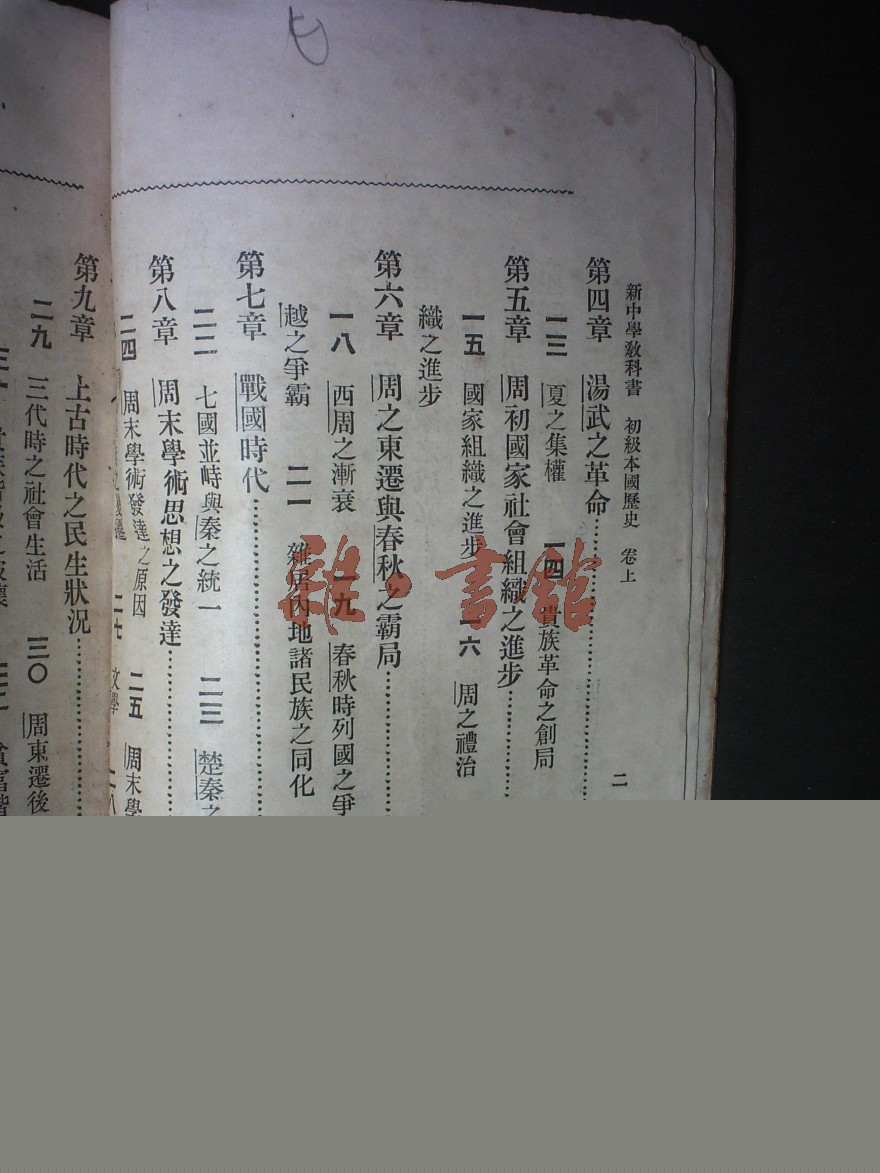 新中學教科書 初級本國歷史 卷上
二
第四章 湯武之革命
一三 夏之集權 一四 貴族革命之創局
第五章 周初國家社會組織之進步
一五 國家組織之進步 一六 周之禮治
織之進步
第六章 周之東遷與春秋之霸局
一八 西周之漸衰 一九 春秋時列國之爭
越之爭霸 二一 雜居內地諸民族之同化
第七章 戰國時代
二二 七國並峙與秦之統一 二三 楚秦之
第八章 周末學術思想之發達
二四 周末學術發達之原因 二五 周末學
二七 文學 二八
第九章 上古時代之民生狀況
二九 三代時之社會生活 三〇 周東遷後
雜·書館